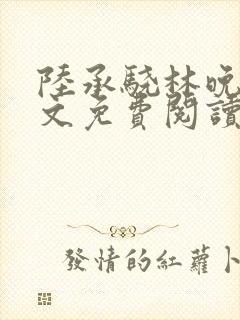 陸承驍林晚
文免費閱讀
發情的紅蘿卜